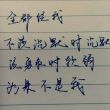 全都怪我
不该沉默时沉默
该勇敢时软弱
如果不是我